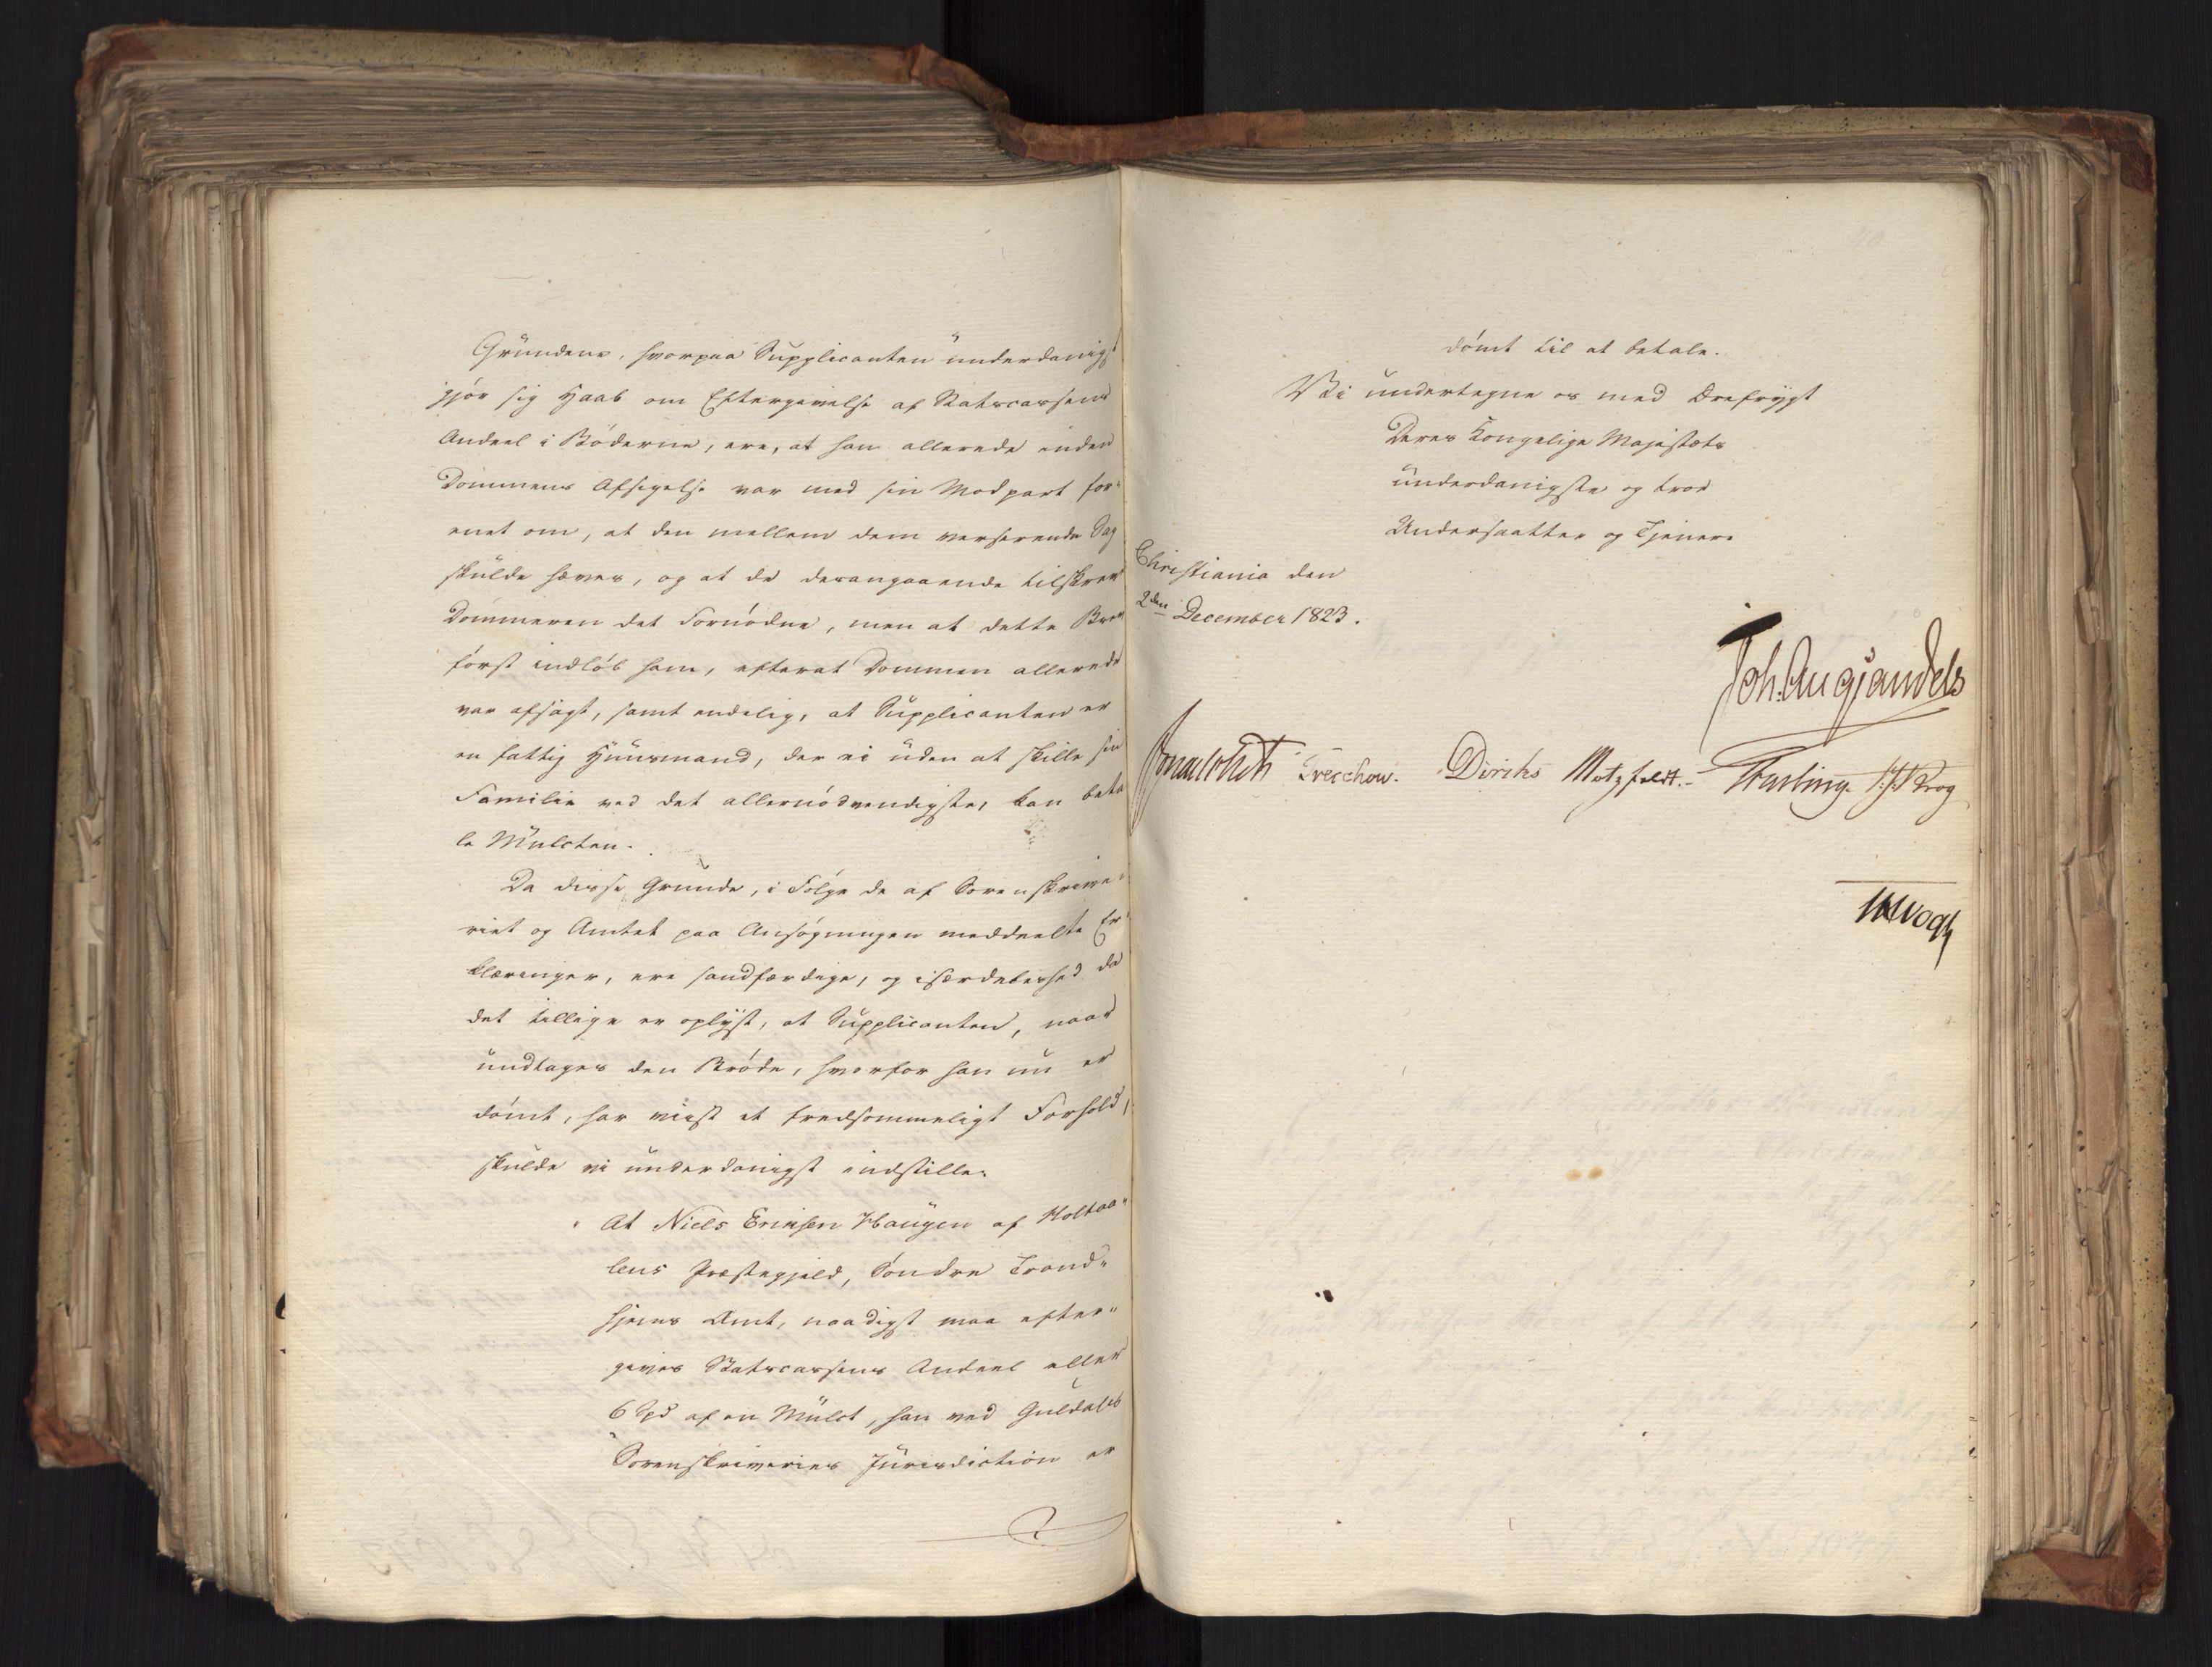 Grundene, hvorpaa Supplicanten underdanigst
gjør sig Haab om Eftergivelse af Statscassens
Andeel i Bøderne, ere, at han allerede inden
Dommens Afsigelse var med sin Modpart for-
enet om, at den mellem dem verserende Sag
skulde hæves, og at de desangaaende tilskrev
Dommeren det Fornødne, men at dette Brev
først indløb ham, efterat Dommen allerede
var afsagt, samt endelig, at Supplicanten er
en fattig Huusmand, der ei uden at skille sin
Familie ved det allernødvendigste, kan beta
le Mulcten.
Da disse Grunde, i Følge de af Sorenskrive-
riet og Amtet paa Ansøgningen meddeelte Er-
klæringer, ere sandfærdige, og isærdeleshed da
det tillige er oplyst, at Supplicanten, naar
undtages den Brøde, hvorfor han nu er
dømt, har viist et fredsommeligt Forhold,
skulde vi underdanigst indstille:
At Niels Eriksen Haugen af Holtaa-
lens Præstegjeld, Søndre Trond-
hjems Amt, naadigst maa efter-
gives Statscassens Andeel eller
6 Spd af en Mulct, han ved Guldals
Sorenskriveries Jurisdiction er
dømt til at betale.
Vi undertegne os med Ærefrygt
Deres Kongelige Majestæts
underdanigste og troe
Undersaatter og Tjenere
Christiania den
2den December 1823.
Joh. Aug. Sandels
Jonas Collett Treschow. Diriks Motzfeldt. Fasting Krog
Vogt